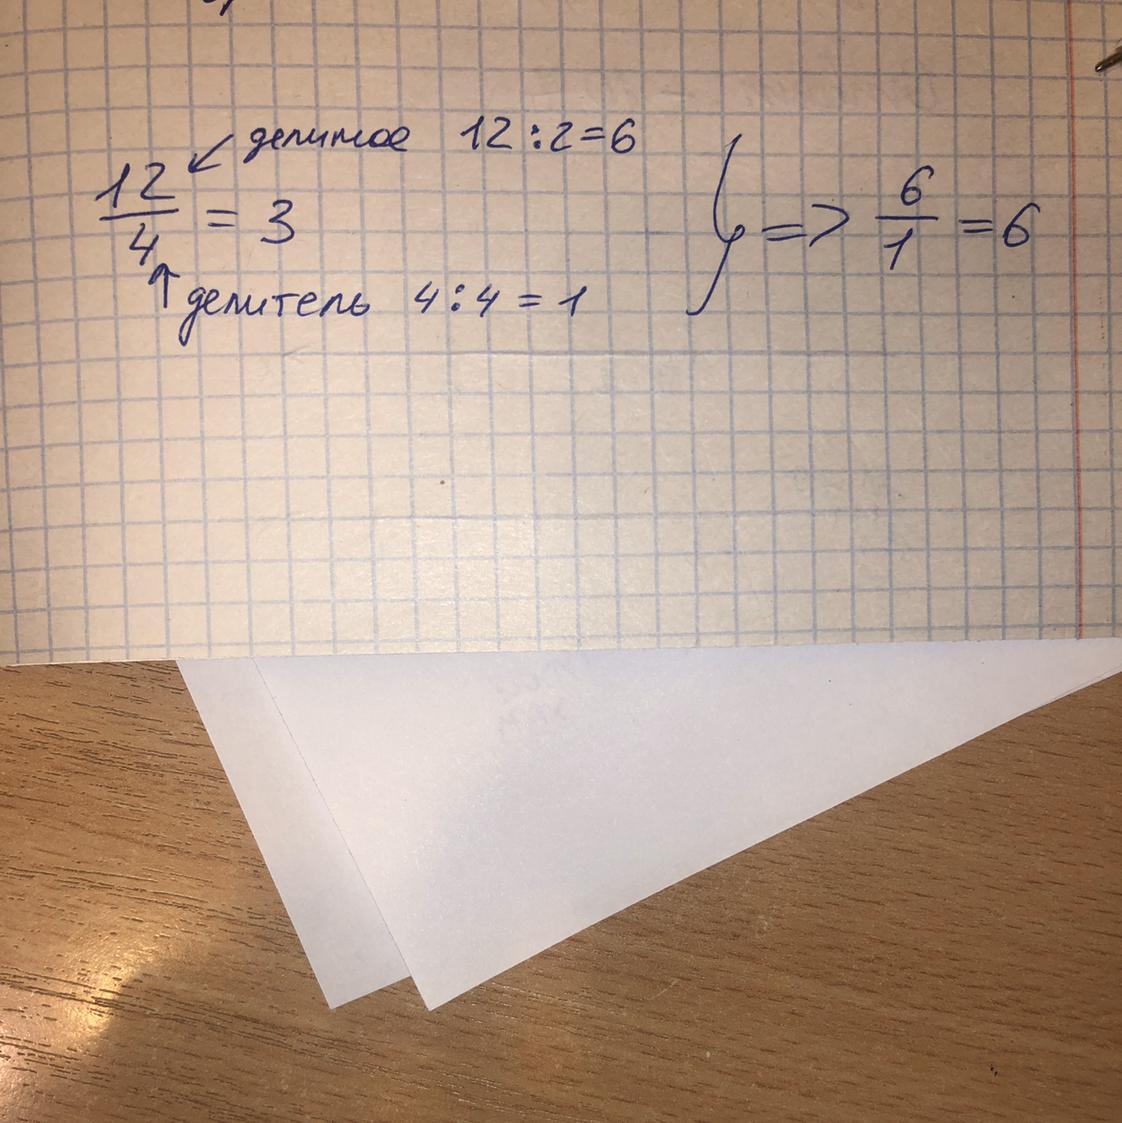 делимое 12 : 2 = 6
12/4 = 3
делитель 4 : 4 = 1
} => 6/1 = 6